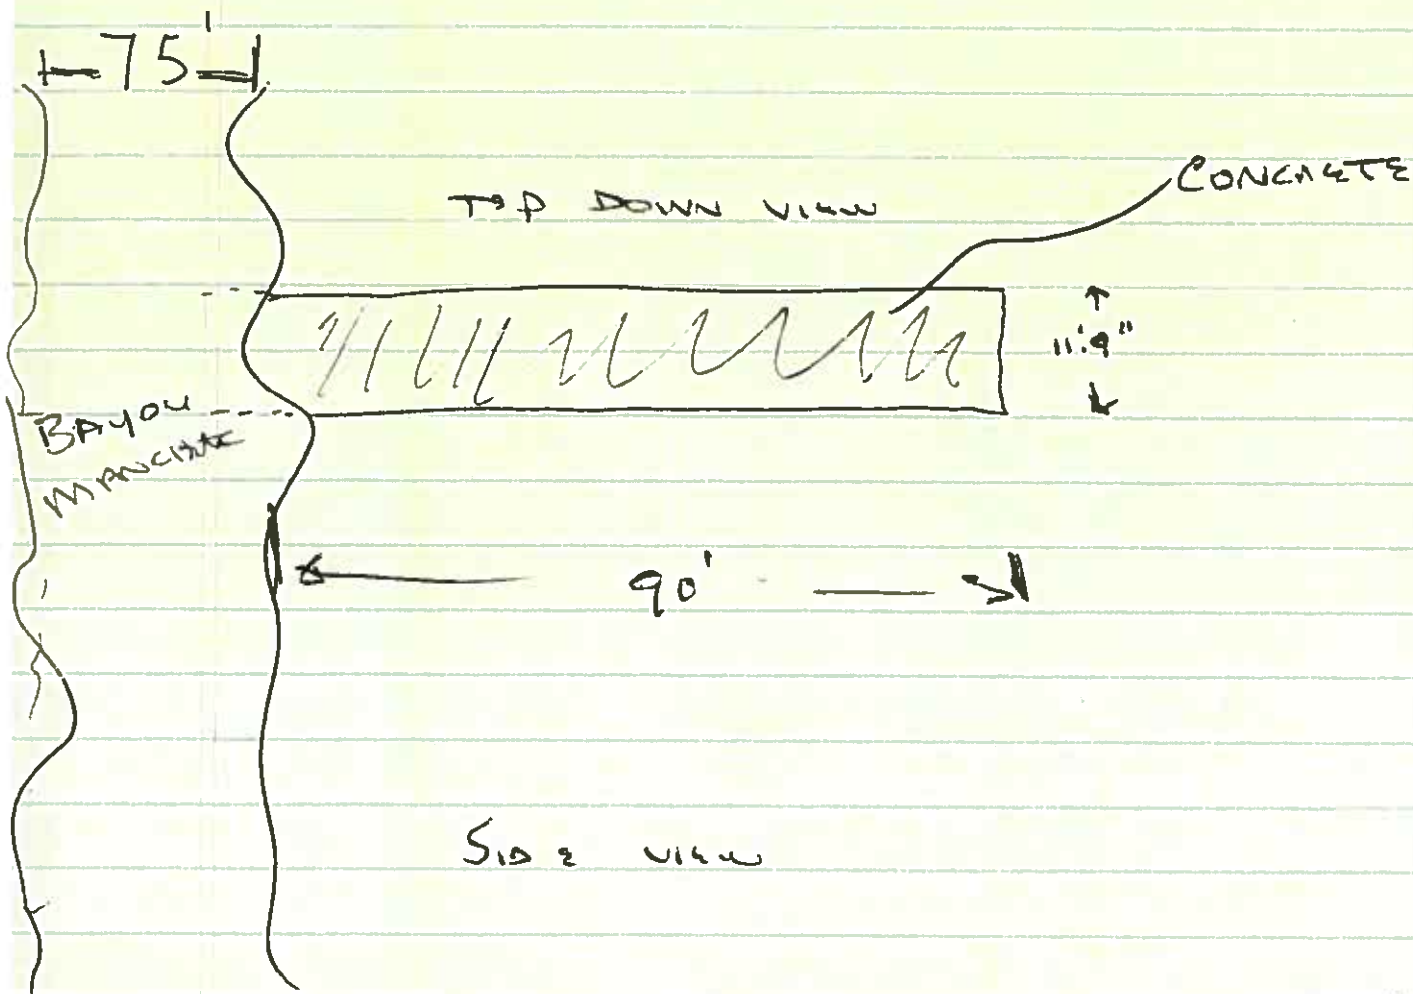 75'
TOP DOWN VIEW
CONCRETE
11'9"
BAYOU
MANCHAC
90'
SIDE VIEW